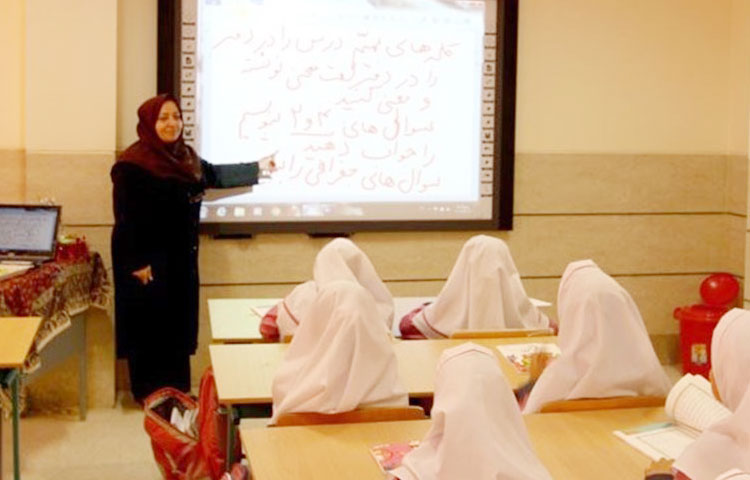 کلمه‌های مهم درس را در دفتر
را در دفتر لغت معنی نوشته
و معنی کنید
سوال های ۴ و ۲
را جواب دهید
سوال های جغرافی را